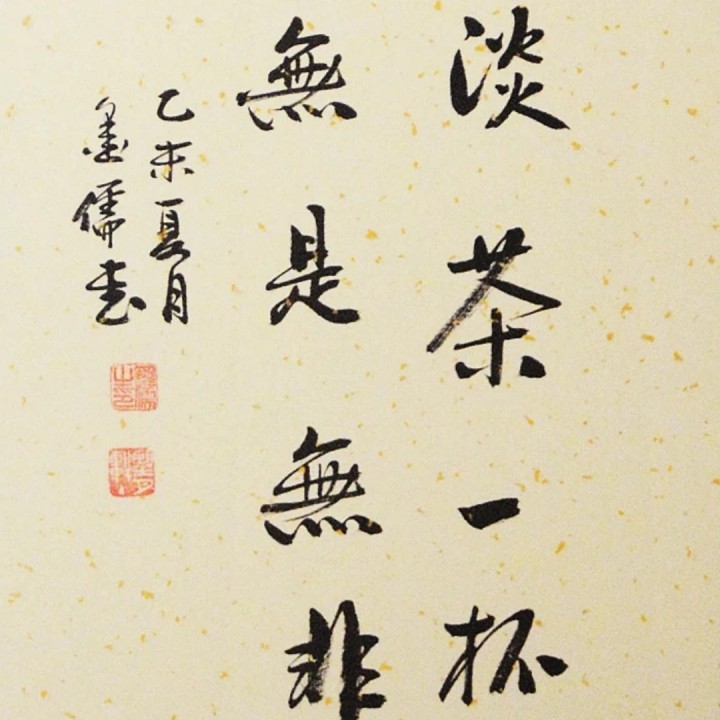 淡茶一杯
無是無非
乙未夏月
墨儒书